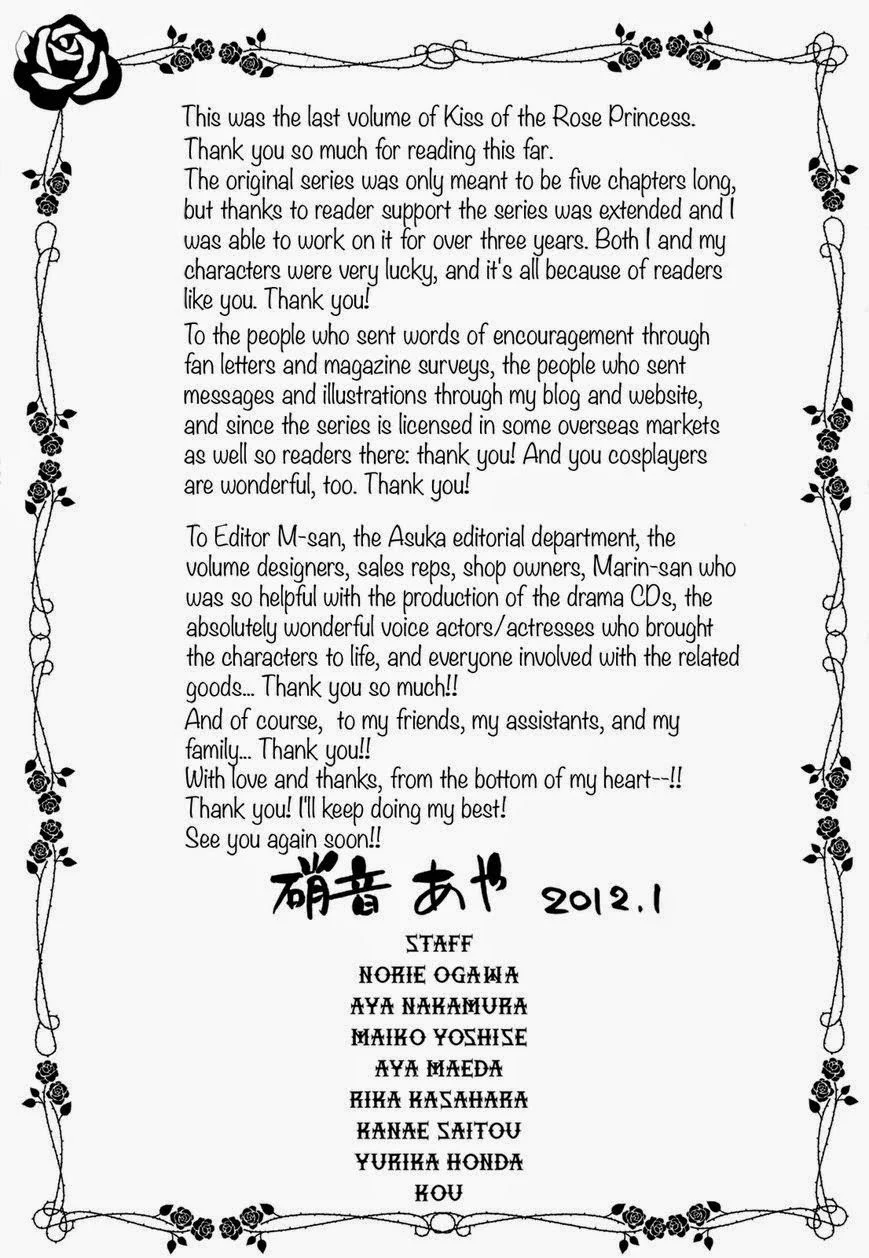 This was the last volume of Kiss of the Rose Princess.
Thank you so much for reading this far.
The original series was only meant to be five chapters long,
but thanks to reader support the series was extended and I
was able to work on it for over three years. Both I and my
characters were very lucky, and it's all because of readers
like you. Thank you!
To the people who sent words of encouragement through
fan letters and magazine surveys, the people who sent
messages and illustrations through my blog and website,
and since the series is licensed in some overseas markets
as well so readers there: thank you! And you cosplayers
are wonderful, too. Thank you!
To Editor M-san, the Asuka editorial department, the
volume designers, sales reps, shop owners, Marin-san who
was so helpful with the production of the drama CDs, the
absolutely wonderful voice actors/actresses who brought
the characters to life, and everyone involved with the related
goods... Thank you so much!!
And of course,  to my friends, my assistants, and my
family... Thank you!!
With love and thanks, from the bottom of my heart--!!
Thank you! I'll keep doing my best!
See you again soon!!
硝音あや 2012.1
STAFF
NORIE OGAWA
AYA NAKAMURA
MAIKO YOSHISE
AYA MAEDA
RIKA KASAHARA
KANAE SAITOU
YURIKA HONDA
KOU